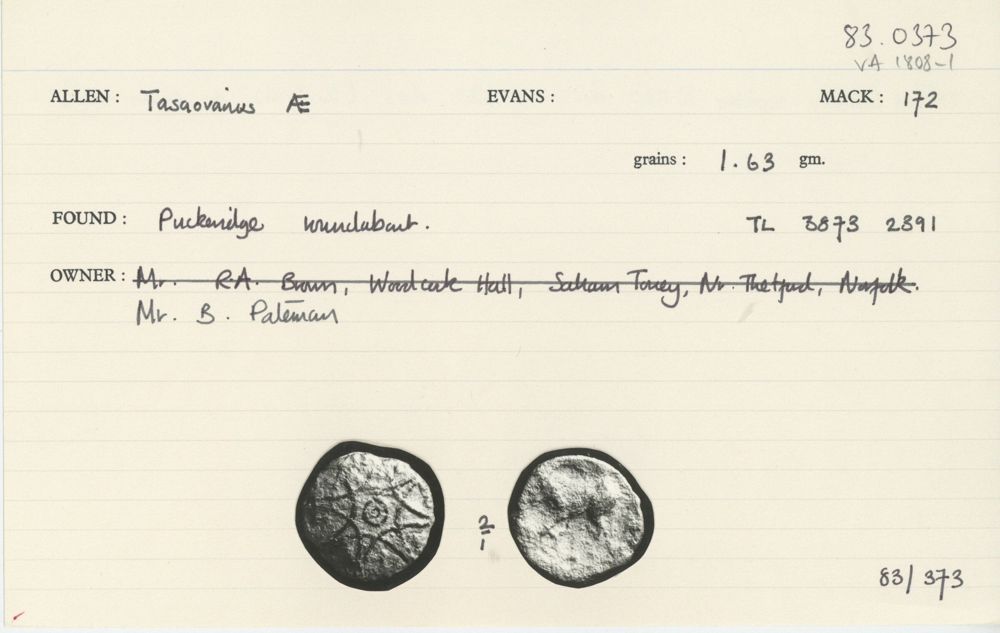 83.0373
VA 1808-1
ALLEN : Tasciovanus Æ EVANS : MACK : 172
grains : 1.63 gm.
FOUND : Puckeridge roundabout. TL 3873 2391
OWNER : Mr. R.A. Brown, Woodcock Hall, Saham Toney, Nr. Thetford, Norfolk.
Mr. B. Pateman
2
1
83/373